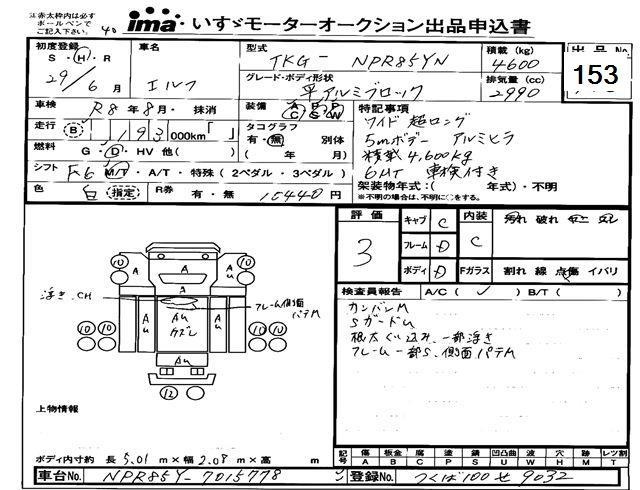 江赤太枠内は必ず
ボールペンで
ご記入下さい。
40
ima いすゞモーターオークション出品申込書
初度登録
S・H・R
29/6月
車名
エルフ
型式
TKG- NPR85YN
積載 (kg)
4600
出品No.
153
グレード・ボディ形状
平アルミブロック
排気量 (cc)
2990
車検 R8年8月・ 抹消
装備 A P P C S W
特記事項
ワイド 超ロング
5mボデー アルミヒラ
積載 4,600kg
6MT 車検付き
走行 B 193 000km「 」
タコグラフ
有・無 別体
( 年 月)
燃料 G・D・HV 他( )
シフト F6 M/T・A/T・特殊 (2ペダル・3ペダル)
架装物年式:( 年式)・不明
※不明の場合は、不明に○をする。
色 白 (指定) R券 有・無 10440円
評価
3
キャブ C
フレーム D
ボディ D
内装 C
Fガラス
汚れ 破れ
割れ 線 点傷 イバリ
検査員報告 A/C( ✓ ) B/T( )
カンバンM
SガードU
根太くい込み、一部浮き
フレーム一部S、側面パテM
浮き、CH
フレーム側面
パテM
10 10 A A A Au 10 10
Au A Au カブレ A Au
10 10 10 10
Au
12
上物情報
ボディ内寸約 長 5.01 m×幅 2.08 m×高 m
記号 傷A 板金B 腐C 塗P 錆S 凹U 凸凹曲 波W 穴H 要M レツ割T
車台No. NPR85Y-7015778
登録No. つくば100せ9032